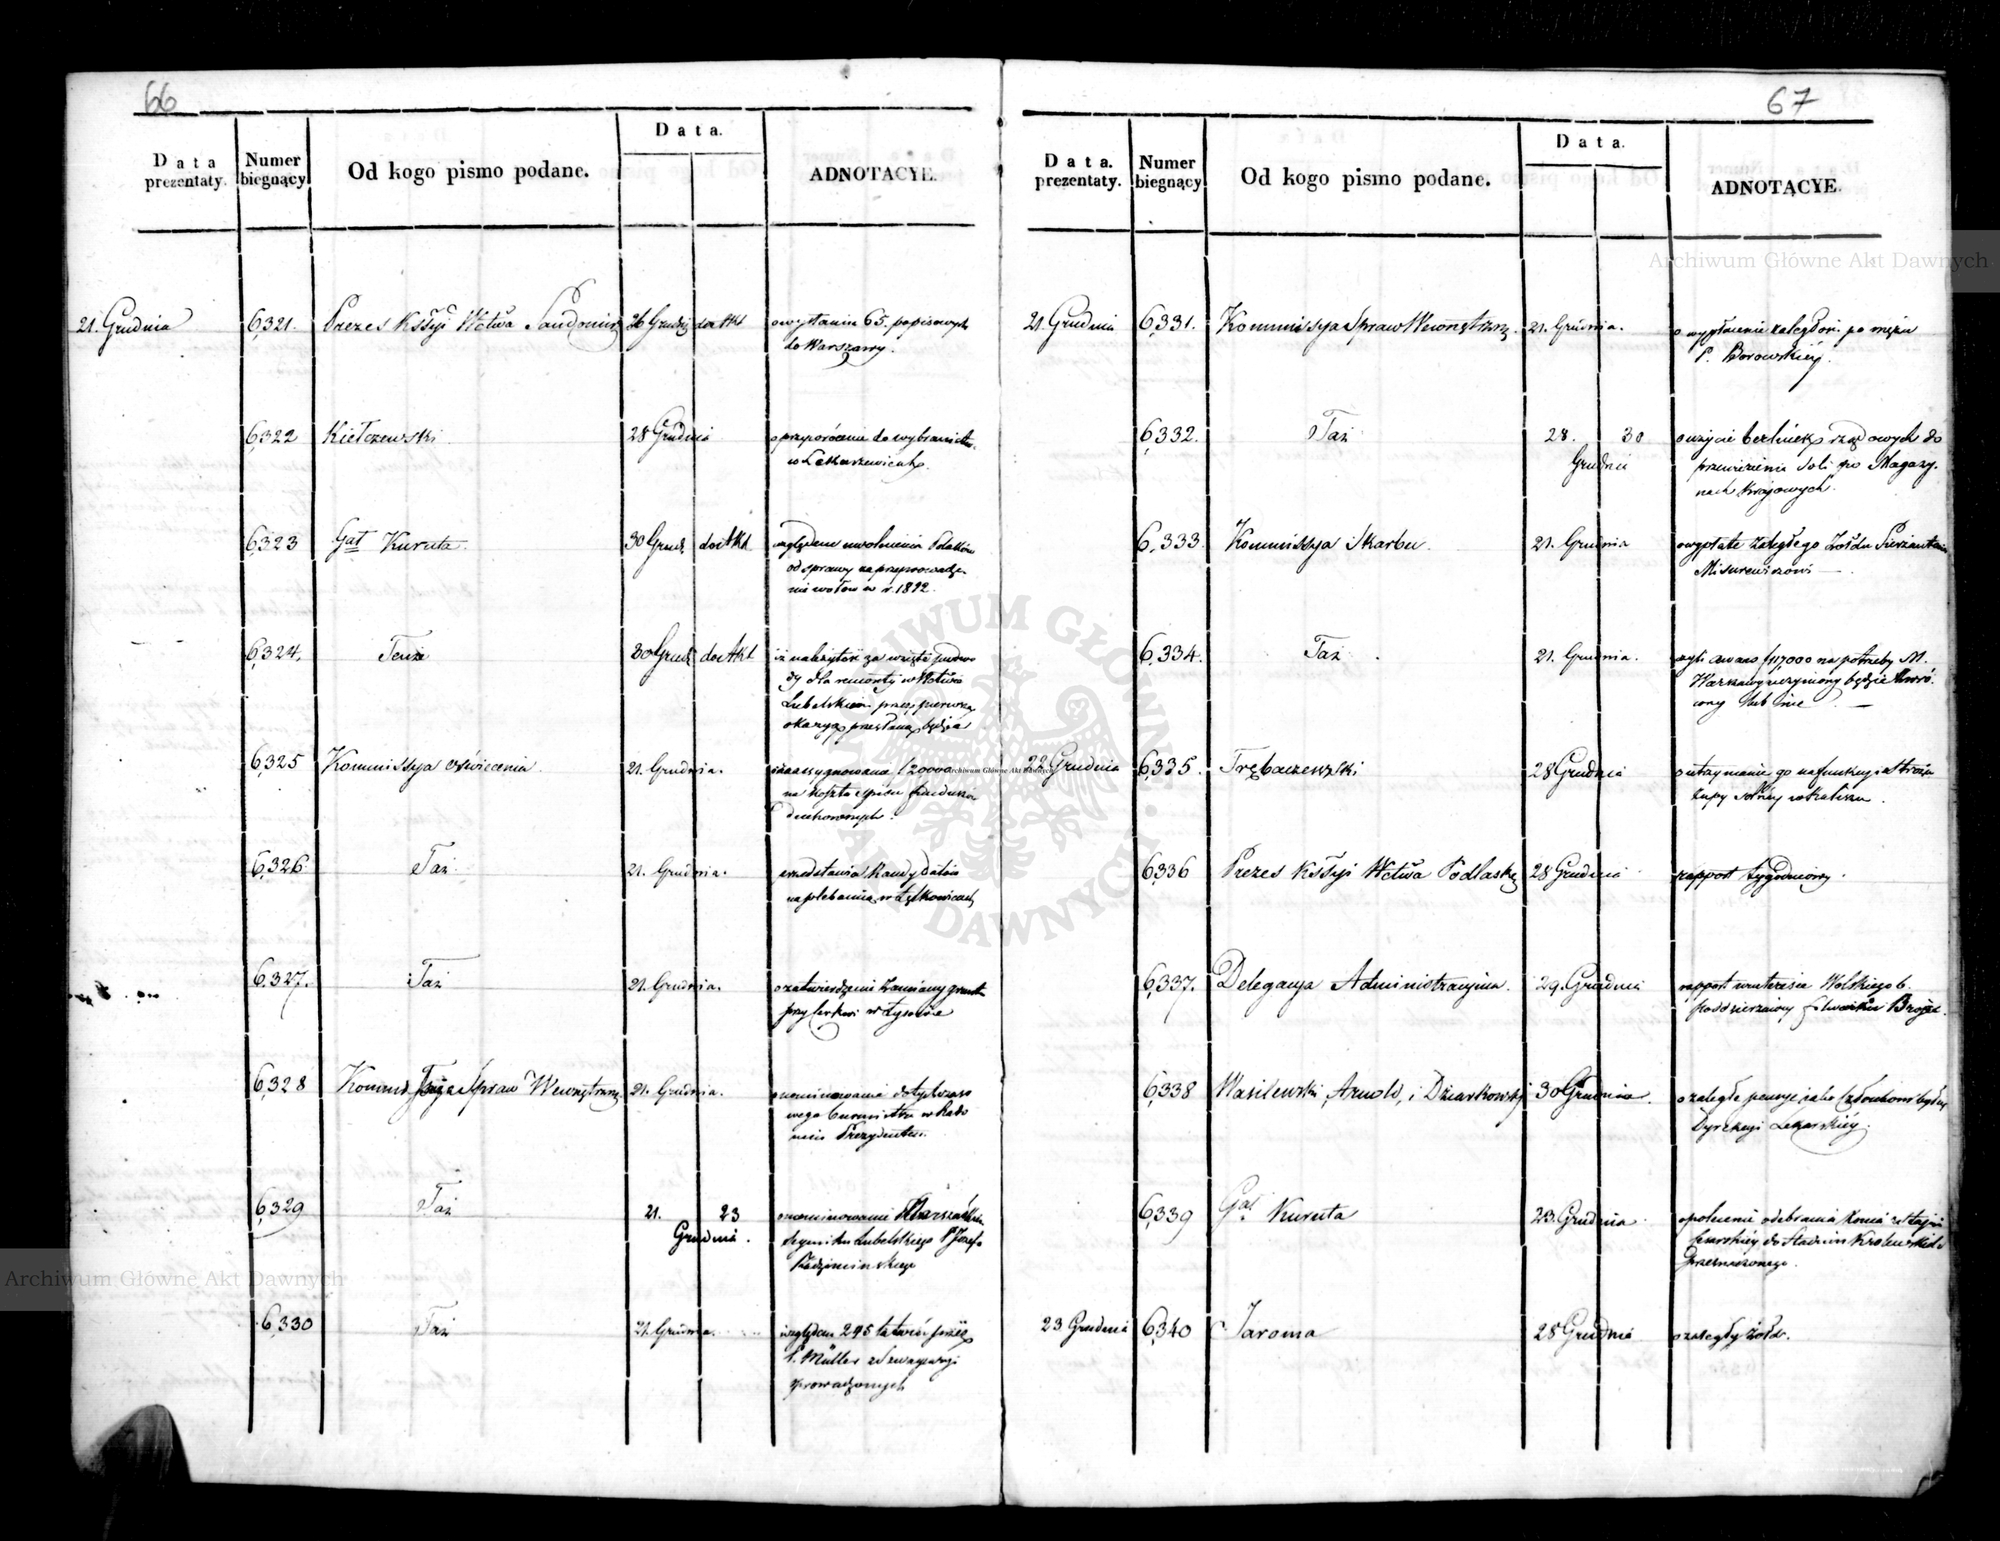 66
Data prezentaty.
Numer biegnący
Od kogo pismo podane.
Data.
ADNOTACYE.
21. Grudnia
6321.
Prezes Kssyi Wctwa Sandomirs
26 Grudz
do Akt
o wysłaniu 65. popisowych
do Warszawy.
6322
Kiełczewski
28 Grudnia
6323
Gał Kuruta.
30 Grud.
do Akt
względem uwolnienia Polaków
od sprawy na przeprowadze
nie wołów w r. 1822.
6324.
Tenże
30 Grud.
do Akt
iż należytość za wzięte podwo
dy dla remonty w Wctwie
Lubelskiem przez pierwszą
okazyą przesłaną będzie
6325
Kommissya oświecenia.
21. Grudnia.
na koszta spisu funduszów
duchownych.
6326
Taż
21. Grudnia.
przedstawia Kandydatów
6327.
Taż
21. Grudnia.
o zatwierdzenie zamiany gruntu
przy Cerkwi w Łysowie
6328
Kommis. Spraw Wewnętrzny
21. Grudnia.
o nominowanie dotychczaso
wego burmistrza w Rado
miu Prezydentem.
6329
Taż
21. 23
Grudnia.
o nominowanie Marszałka
Seymiku Lubelskiego P. Józefa
6330
Taż
21. Grudnia.
względem 295
P. Müller z Szwaycaryi
sprowadzonych
67
Data. prezentaty.
Numer biegnący
Od kogo pismo podane.
Data.
ADNOTĄCYE.
21. Grudnia
6331.
Kommissya Spraw Wewnętrzny.
21. Grudnia.
o wypłacenie zaległości po mężu
P. Borowskiéy.
6332.
Taż
28. 30
Grudnia
o użycie berlinek rządowych do
przewiezienia Soli po Magazy.
nach Krajowych.
6,333.
Kommissya Skarbu.
21. Grudnia
o wypłatę zaległego żołdu Sierżantowi
Misurewiczowi —.
6,334.
Taż.
21. Grudnia.
czyli awans f 117,000 na potrzeby M.
Warszawy uczyniony będzie zwró.
cony lub nie. —
22 Grudnia
6,335.
Trębaczewski
28 Grudnia
o utrzymanie go na funkcyi Stróża
żupy Solnéy w Kaliszu.
6336
Prezes Kssyi Wctwa Podlaskg
28 Grudnia
rapport tygodniowy.
6,337.
Delegacya Administracyina.
29. Grudnia
rapport w interesie Wolskiego b.
Poddzierzawcy folwarku Brzoza.
6338
Wasilewski, Arnold, i Dziarkowski
30 Grudnia.
o zaległe pensye jako Członkom byłéy
Dyrekcyi Lekarskiéy.
6339
Gał Kuruta
23. Grudnia
o polecenie odebrania Konia ze Stajni
Cesarskiéy do Stadnin Królewskich
przeznaczonego.
23 Grudnia
6340
Jaroma
28 Grudnia
o zaległy żołd.
Archiwum Główne Akt Dawnych
Archiwum Główne Akt Dawnych
Archiwum Główne Akt Dawnych
ARCHIWUM GŁÓWNE AKT DAWNYCH